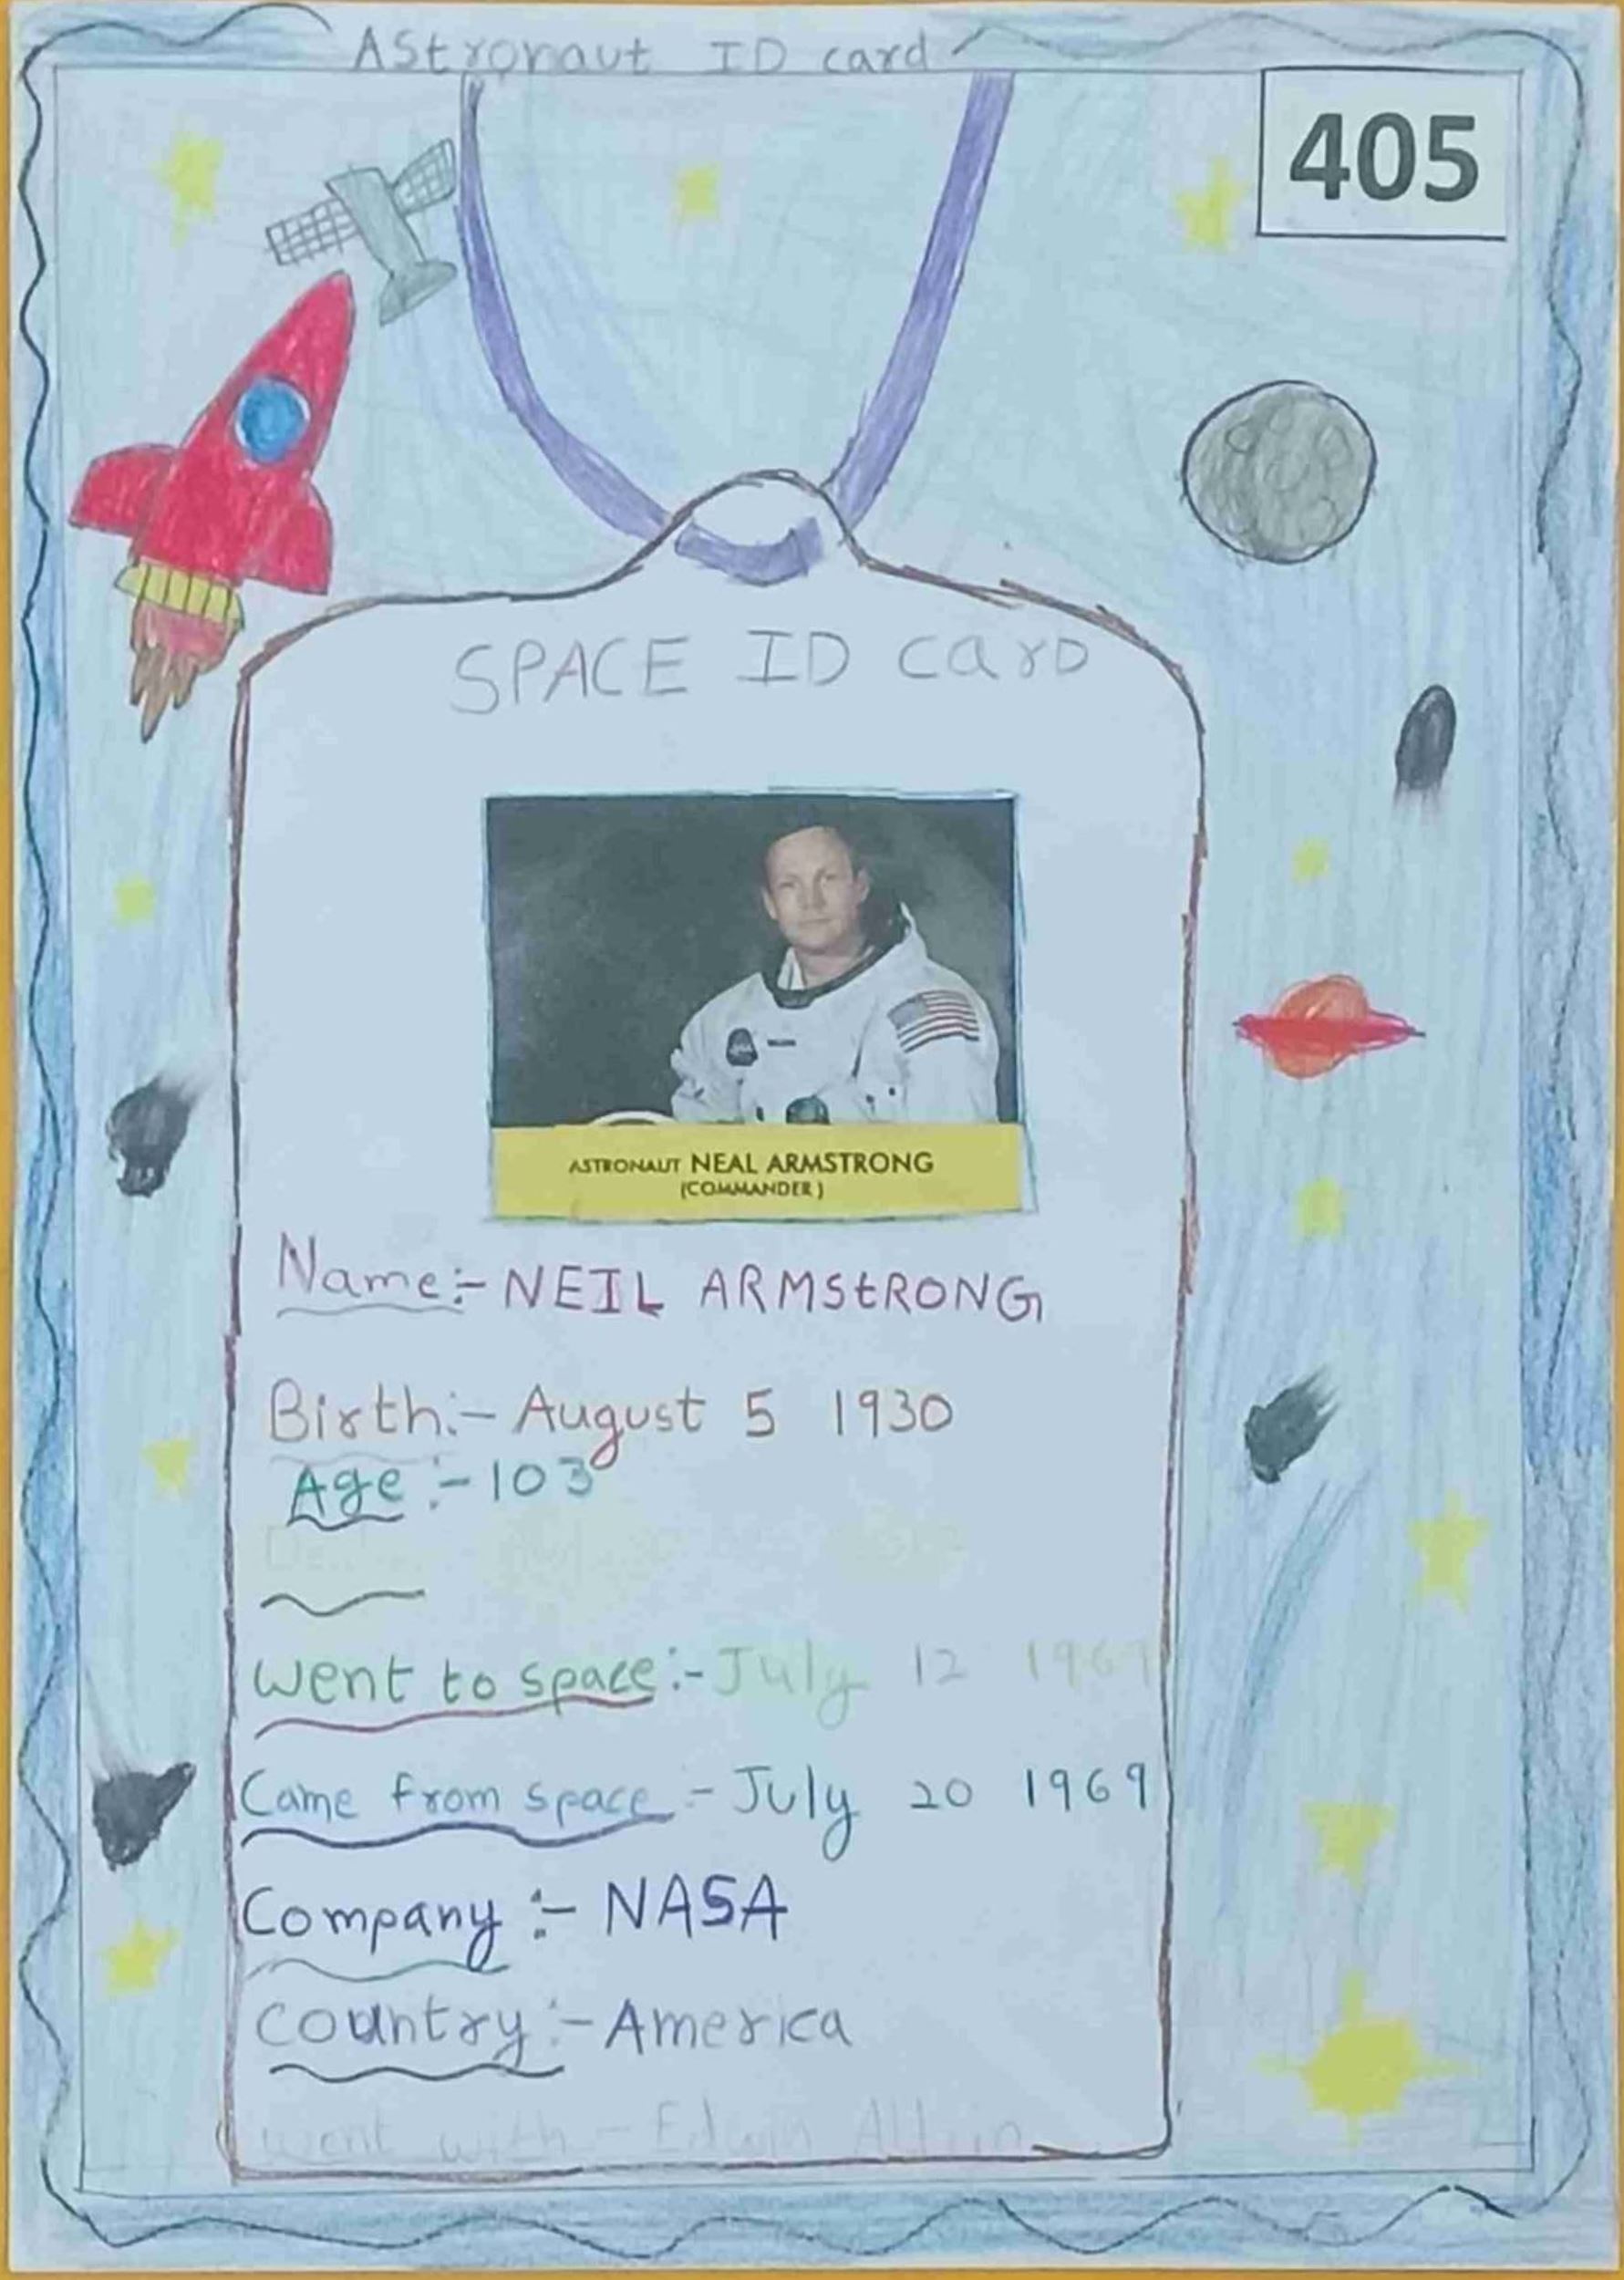 AStronaut ID card
405
SPACE ID CarD
ASTRONAUT NEAL ARMSTRONG
(COMMANDER)
Name:- NEIL ARMStRONG
Birth:- August 5 1930
Age:- 103
went to space:- July 12 1969
Came from space:- July 20 1969
Company:- NASA
Country:- America
went with- Edwin